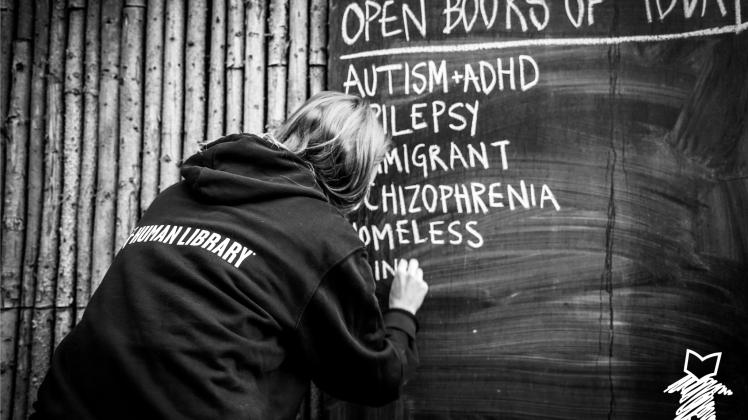 OPEN BOOKS OF TODAY
AUTISM+ADHD
PILEPSY
MMIGRANT
CHIZOPHRENIA
HOMELESS
IN
HUMAN LIBRARY